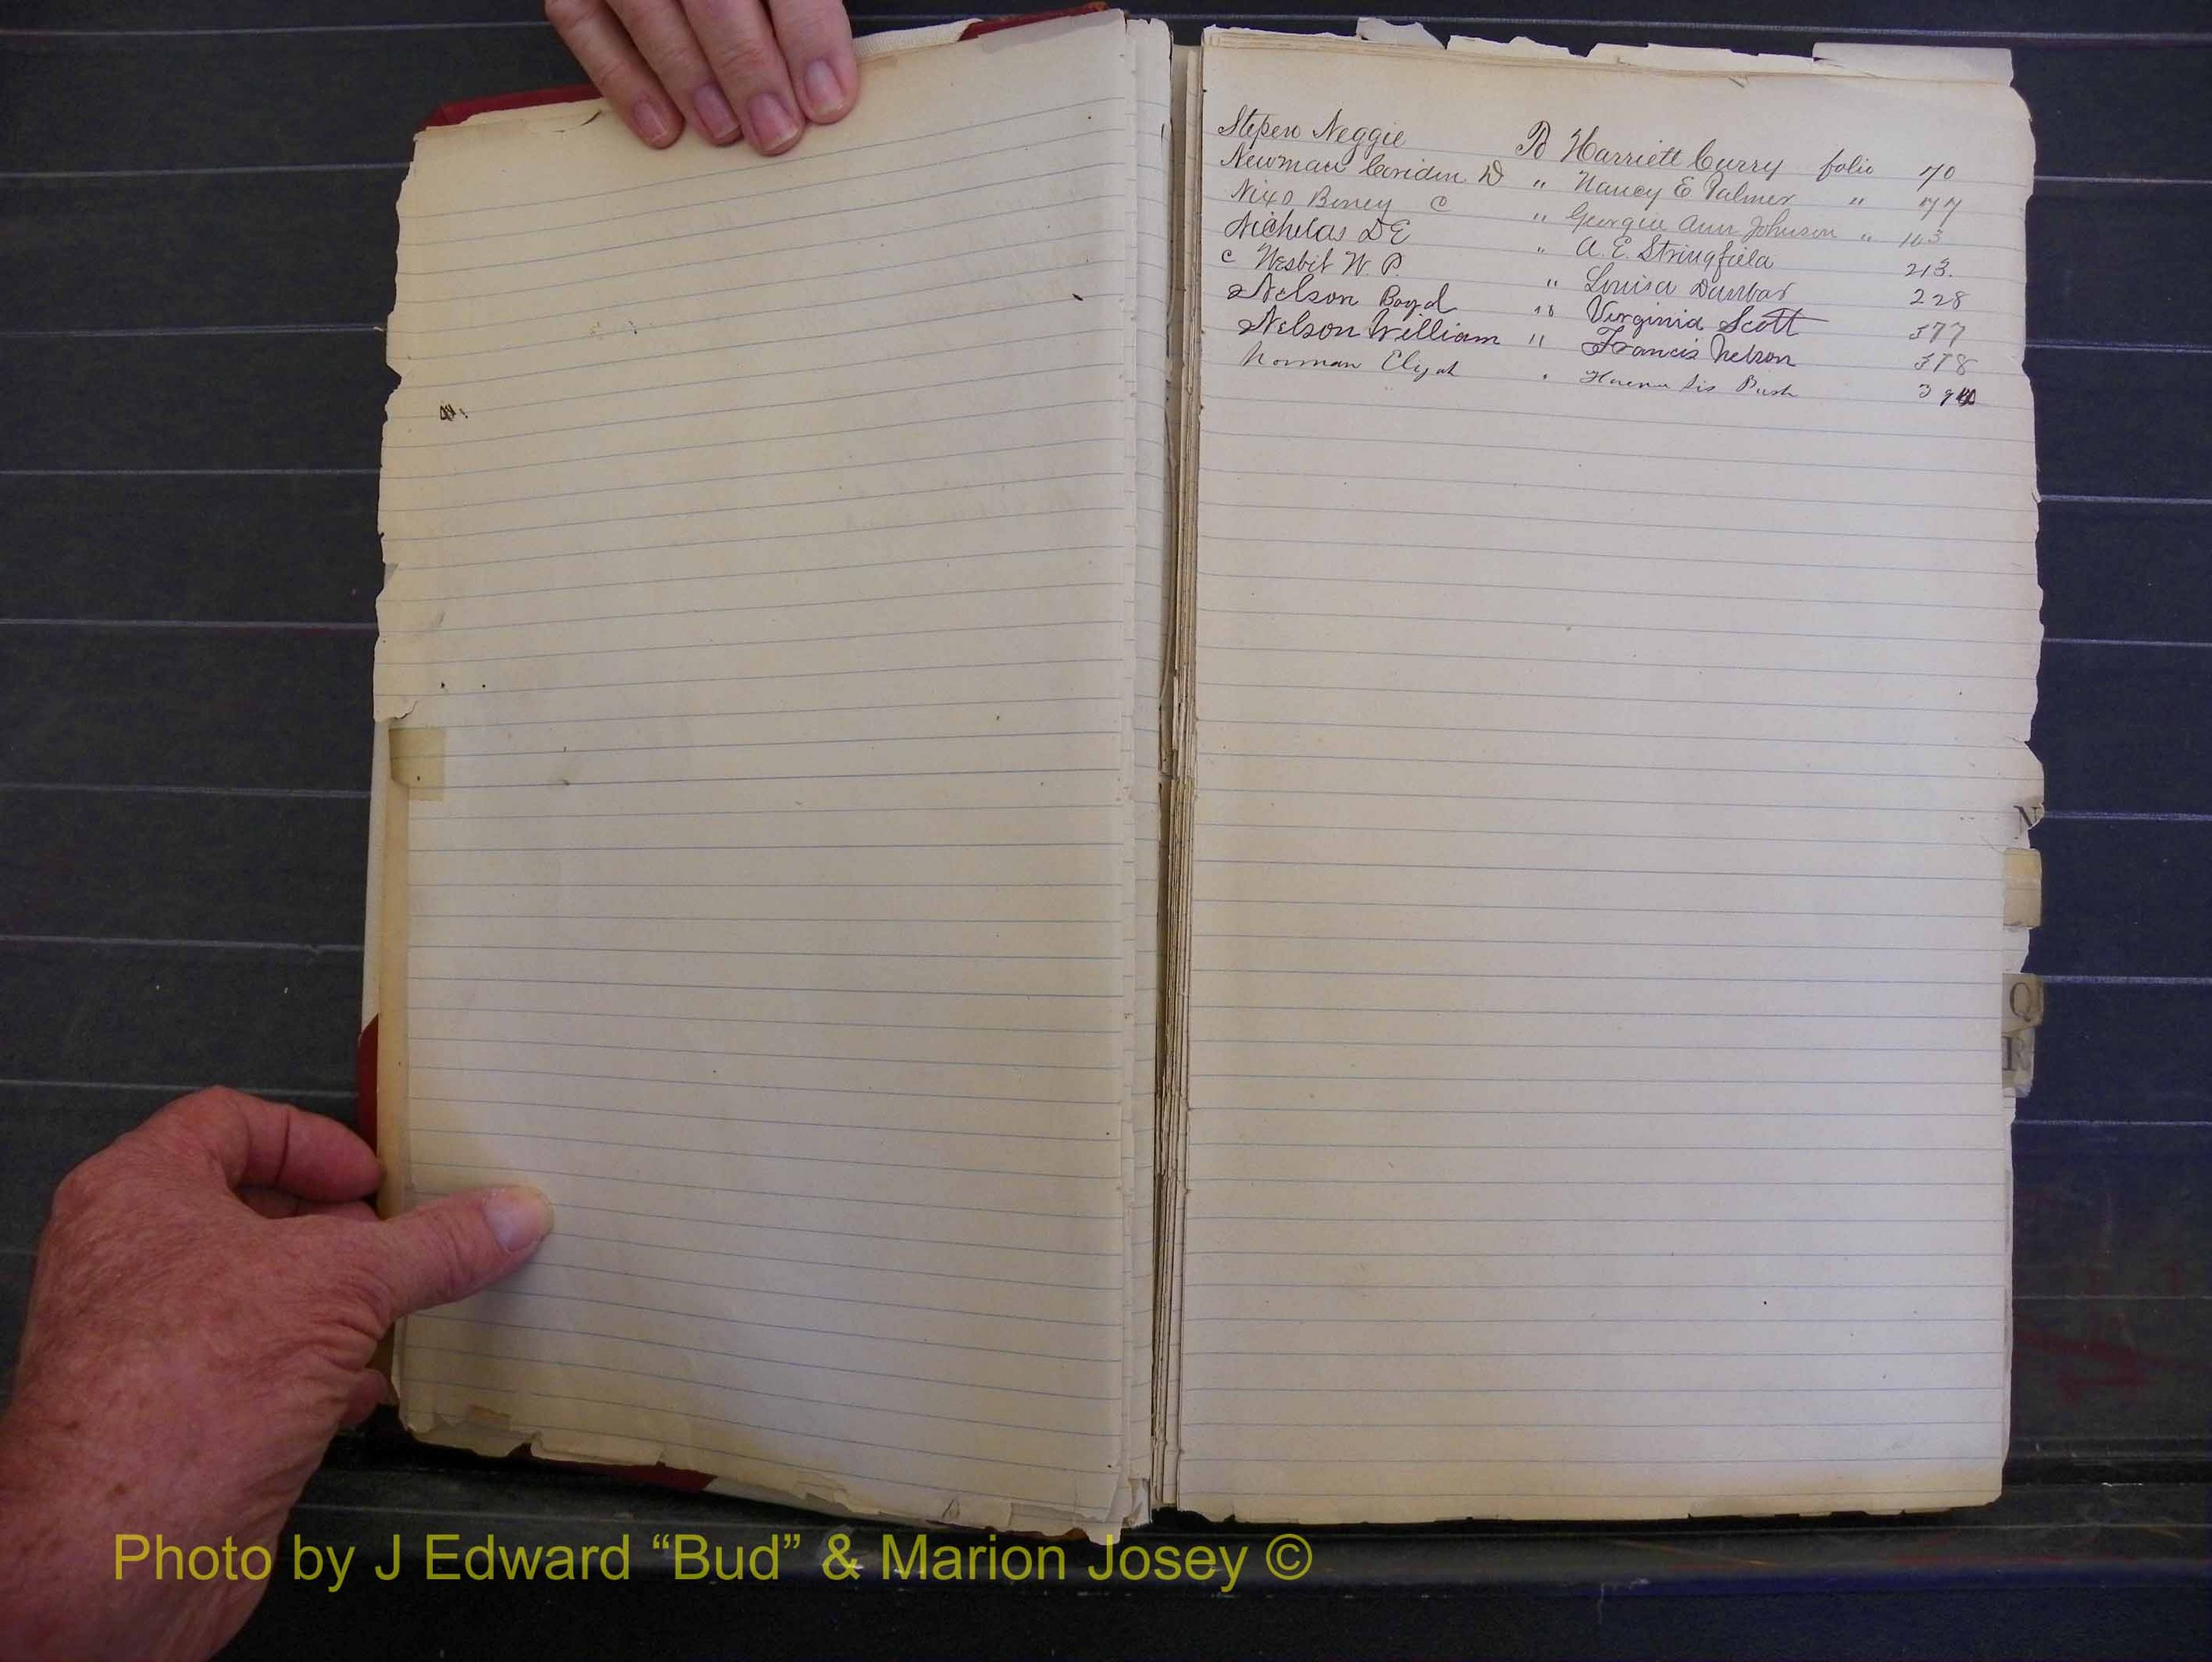 Stepen Neggie To Harriett Curry folio 70
Newman D " Nancy E Palmer " 77
Nixo Boney c " Georgia Ann Johnson " 103
Nicholas D E " A. E. Stringfield 213.
c Nesbit W. P. " Louisa Dunbar 228
Nelson Boyd " Virginia Scott 377
Nelson William " Francis Nelson 378
Norman Elijah " Bush
N
Q
R
Photo by J Edward “Bud” & Marion Josey ©